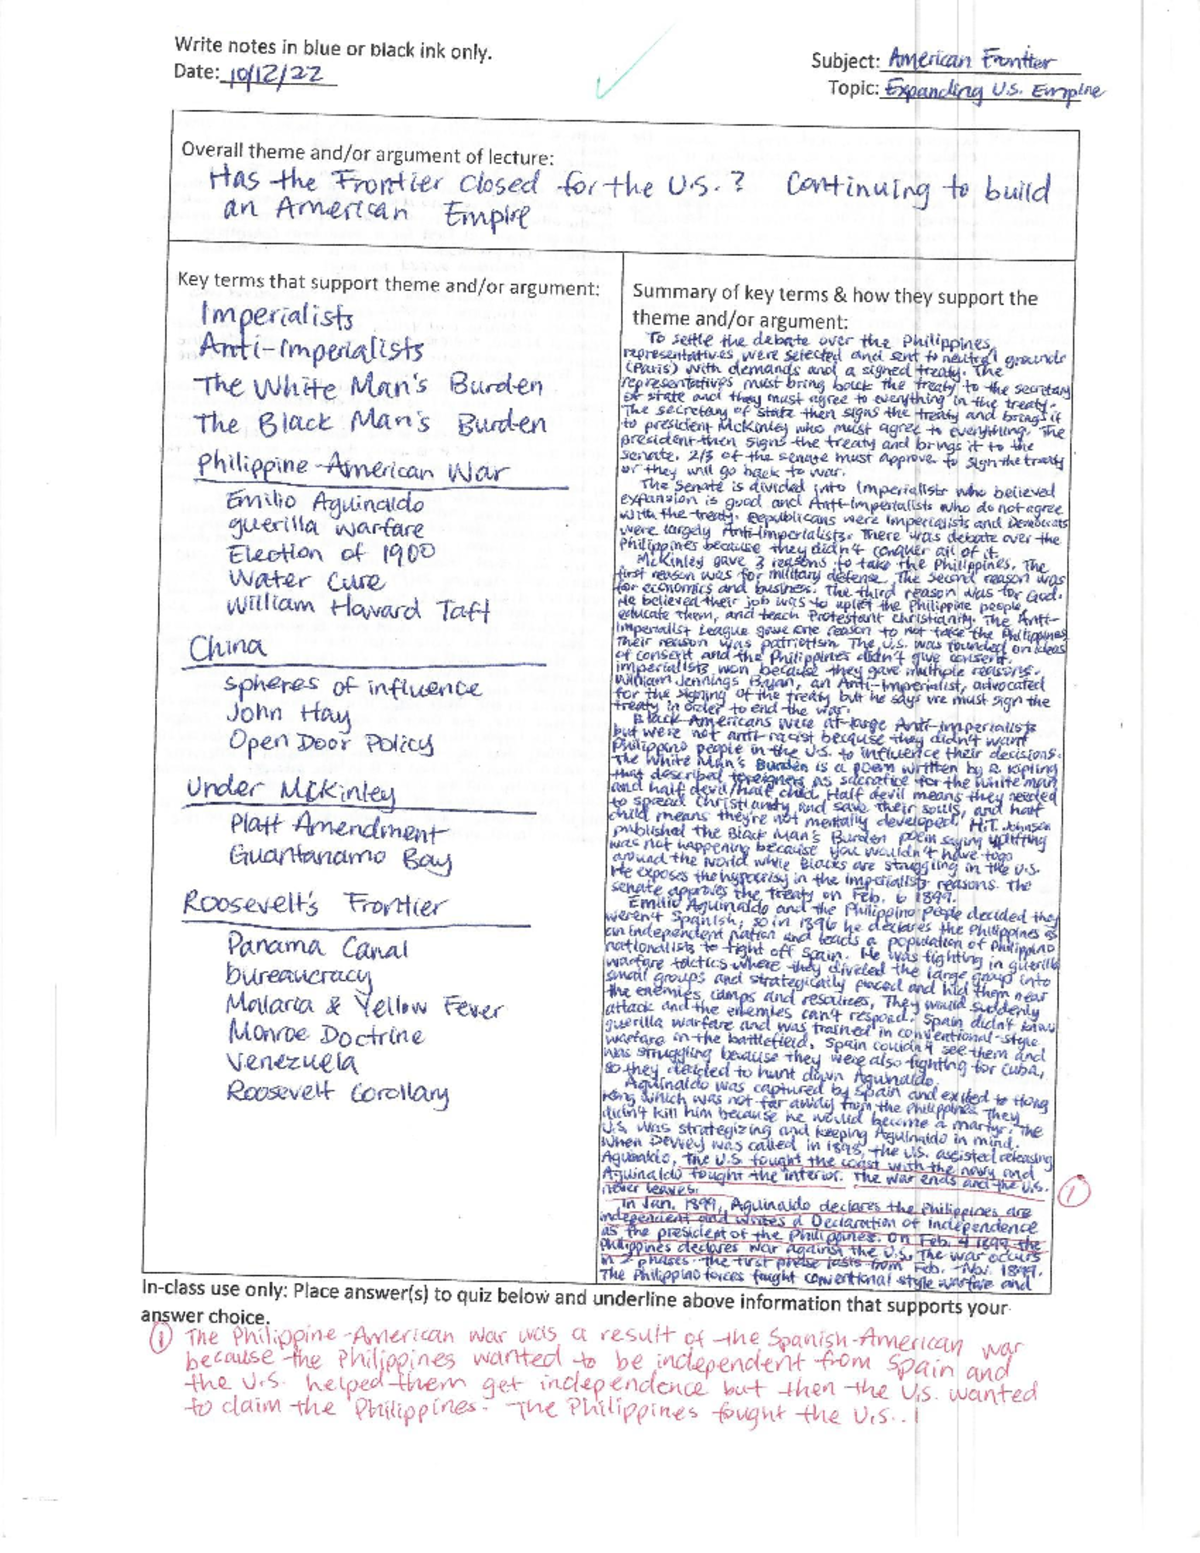 Write notes in blue or black ink only.
Date: 10/12/22
Subject: American Frontier
Topic: Expanding U.S. Empire
Overall theme and/or argument of lecture:
Has the Frontier closed for the U.S.? Continuing to build
an American Empire
Key terms that support theme and/or argument:
Imperialists
Anti-Imperialists
The White Man's Burden
The Black Man's Burden
Philippine-American War
Emilio Aguinaldo
guerilla warfare
Election of 1900
Water Cure
William Havard Taft
China
spheres of influence
John Hay
Open Door Policy
Under McKinley
Platt Amendment
Guantanamo Bay
Roosevelt's Frontier
Panama Canal
bureaucracy
Malaria & Yellow Fever
Monroe Doctrine
Venezuela
Roosevelt Corollary
Summary of key terms & how they support the
theme and/or argument:
To settle the debate over the Philippines,
representatives were selected and sent to neutral grounds
(Paris) with demands and a signed treaty. The
representatives must bring back the treaty to the secretary
of state and they must agree to everything in the treaty.
The secretary of state then signs the treaty and brings it
to president McKinley who must agree to everything. The
president then signs the treaty and brings it to the
senate. 2/3 of the senate must approve to sign the treaty
or they will go back to war.
The Senate is divided into Imperialists who believed
expansion is good and Anti-Imperialists who do not agree
with the treaty. Republicans were Imperialists and Democrats
were largely Anti-Imperialists. There was debate over the
Philippines because they didn't conquer all of it.
McKinley gave 3 reasons to take the Philippines. The
first reason was for military defense. The second reason was
for economics and business. The third reason was for God.
He believed their job was to uplift the Philippine people,
educate them, and teach Protestant Christianity. The Anti-
Imperialist League gave one reason to not take the Philippines
Their reason was patriotism. The U.S. was founded on ideas
of consent and the Philippines didn't give consent.
imperialists won because they gave multiple reasons.
William Jennings Bryan, an Anti-Imperialist, advocated
for the signing of the treaty but he says we must sign the
treaty in order to end the war.
Black Americans were at-large Anti-imperialists
but were not anti-racist because they didn't want
Philippino people in the U.S. to influence their decisions.
The White Man's Burden is a poem written by R. Kipling
that described foreigners as sacrafice for the white man
and half devil/half child. Half devil means they needed
to spread Christianity and save their souls, and half
child means they're not mentally developed. H.T. Johnson
published the Black Man's Burden poem saying uplifting
was not happening because you wouldn't have to go
around the world while Blacks are struggling in the U.S.
He exposes the hypocrisy in the imperialists reasons. The
senate approves the treaty on Feb. 6 1899.
Emilio Aguinaldo and the Philippino people decided they
weren't Spanish, so in 1896 he declares the Philippines as
an independent nation and leads a population of Philippino
nationalists to fight off Spain. He was fighting in guerilla
warfare tactics where they divided the large group into
small groups and strategically placed and hid them near
the enemies camps and resources. They would suddenly
attack and the enemies can't respond. Spain didn't know
guerilla warfare and was trained in conventional-style
warfare in the battlefield. Spain couldn't see them and
was struggling because they were also fighting for Cuba,
so they decided to hunt down Aguinaldo.
Aguinaldo was captured by Spain and exiled to Hong
Kong which was not far away from the Philippines. They
didn't kill him because he would become a martyr. The
U.S. was strategizing and keeping Aguinaldo in mind.
When Dewey was called in 1898, the U.S. assisted releasing
Aguinaldo. The U.S fought the coast with the navy and
Aguinaldo fought the interior. The war ends and the U.S.
never leaves.
In Jan. 1899, Aguinaldo declares the Philippines are
independent and writes a Declaration of Independence
as the president of the Philippines. On Feb. 4 1899 the
Philippines declares war against the U.S. The war occurs
in 2 phases. The first phase lasts from Feb. - Nov. 1899.
The Philippino forces fought conventional style warfare and
1
In-class use only: Place answer(s) to quiz below and underline above information that supports your
answer choice.
1 The Philippine-American war was a result of the Spanish-American war
because the Philippines wanted to be independent from Spain and
the U.S. helped them get independence but then the U.S. wanted
to claim the Philippines. The Philippines fought the U.S..